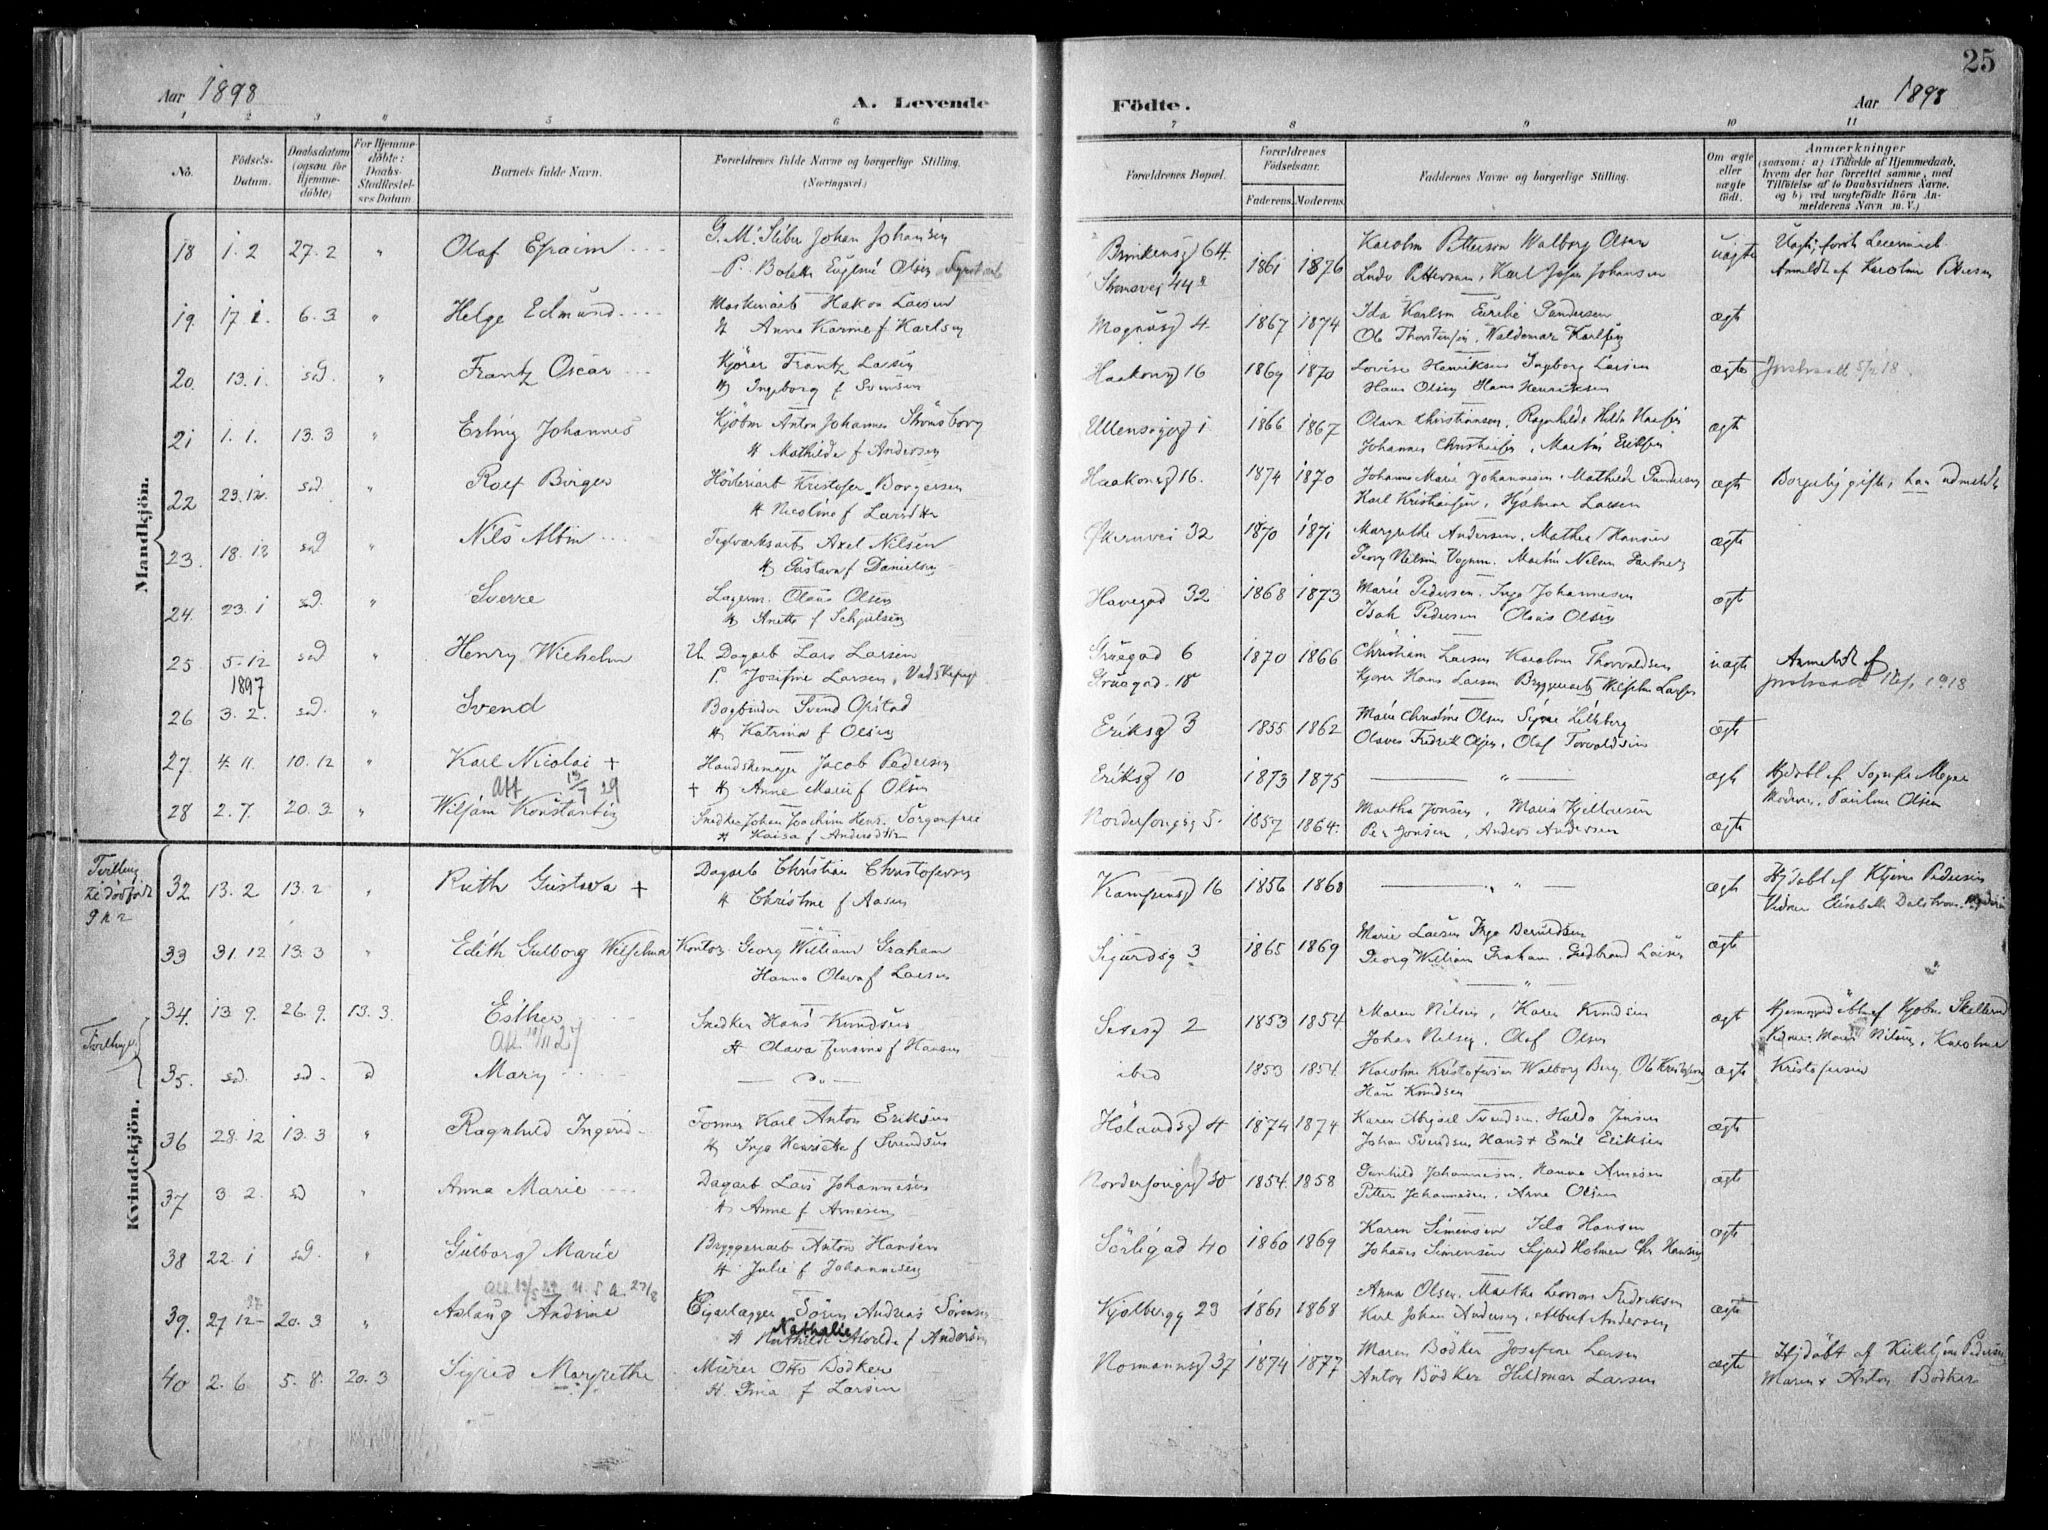 25
Aar 1898
A. Levende
Födte.
Aar 1898
1 2 3 " 5 6 7 8 9 10 11
No.
Födsels-
Datum.
Daabsdatum
(ogsaa for
Hjemme-
döbte)
For Hjemme-
döbte:
Daabs-
Stadfæstel-
ses Datum
Barnets fulde Navn.
Forældrenes fulde Navne og borgerlige Stilling.
(Næringsvei.)
Forældrenes Bopæl.
Forældrenes
Födselsaar.
Faderens. Moderens.
Faddernes Navne og borgerlige Stilling.
Om ægte
eller
uægte
födt.
Anmærkninger
(saasom: a) i Tilfælde af Hjemmedaab,
hvem der har forrettet samme, med
Tilföielse af to Daabsvidners Navne.
og b) ved uægtefödte Börn An-
melderens Navn m. V.)
Mandkjön.
18 1.2 27.2 " Olaf Efraim
G. M. Sliber Johan Johansen
P. Bolette Eugenie Olsen
Brinkensg 64
Strømsvej 44
1861 1876
Karoline Petterson Walborg Olsen
Ludv Petterson, Karl Johan Johansen
uægte
Anmeldt af Karoline Pettersen
19. 17.1. 6.3 " Helge Edmund
Maskinarb Hakon Larsen
H Anna Karine f Karlsen
Magnusg 4.
1867 1874
Ida Karlsen Gundersen
Ole Thorstensen, Waldemar Karlsen
ægte
20. 13.1. sd " Frantz Oscar
Kjører Frantz Larsen
H Ingeborg f Svensen
Haakonsg 16
1869 1870
Lovise Henriksen Ingeborg Larsen
Hans Olsen Hans Henriksen
ægte
21 1.1. 13.3 " Erling Johannes
Kjøbm Anton Johannes Strømsborg
H Mathilde f Andersen
Ullensagerg 1
1866 1867
Olava Christiansen, Ragnhild Hilda
Johannes Christiansen, Martin Eriksen
ægte
22 23.12. sd " Rolf Birger
Høvleriarb Kristofer Borgersen
H Nicoline f Larsdtr
Haakonsg 16.
1874 1870
Johanne Marie Johannesen. Mathilde Gundersen
Karl Kristiansen, Hjalmar Larsen
ægte
Borgerlig gifte,
23. 18.12 sd " Nils Albin
Teglværksarb Axel Nilsen
H Gustava f Danielsen
Økernvei 32
1870 1871
Margrethe Andersen, Mathea Hansen
Georg Nilsen Vognm. Martin Nilsen Gartner
ægte
24. 23.1 sd. " Sverre
Lagerm. Olaus Olsen
H Anette f Schjulsen
Havegad 32
1868 1873
Marie Pedersen. Inga Johannesen
Isak Pedersen Olaus Olsen
ægte
25 5.12 sd "
1897
Henry Wilhelm
U. Dagarb Lars Larsen
P. Josefine Larsen, Vadskepige
Grüegad 6
Grüegad. 18
1870 1866
Christian Larsen Karoline Thorvaldsen
Kjører Hans Larsen Bryggeriarb Wilhelm Larsen
uægte
Anmeldt af
1918
26 3.2. sd. " Svend
Bogbinder Svend Opstad
H Katrina f Olsen
Eriksg 3
1855 1862
Marie Christine Olsen Signe Lilleberg
Olaves Fredrik Olsen, Olaf Torvaldsen
ægte
27. 4.11. 10.12 " Karl Nicolai +
Handskemager Jacob Pedersen
+ H Anne Marie f Olsen
Eriksg 10
1873 1875
"
ægte
Hjdøbt af Sognepr Meyer
Moderen, Pauline Olsen
Att 19/7 29
28 2.7. 20.3 " Wiljam Konstantin
Snedker Johan Joachim Henr. Sorgenfrei
H Kaisa f Andersdtr
Nordersongsg 5.
1857 1864.
Martha Jonsen, Maria Kjellersen
Per Jonsen, Anders Andersen
ægte
Kvindekjön.
Tvilling
32 13.2 13.2 " Ruth Gustava +
Dagarb Christian Christofersen
H Christine f Aasen
Kampensg 16
1856 1868
"
ægte
Hjdøbt af Kjerne Pedersen
Vidner Elisabeth Dalstrøm
33 31.12 13.3 " Edith Gulborg Wilhelma
Kontor. Georg William Graham
Hanna Olava f Larsen
Sigurdsg 3
1865 1869
Marie Larsen Inga Berntsen
Georg William Graham. Gudbrand Larsen
ægte
34. 13.9. 26.9. 13.3. Esther
Att. 10/11 27
Snedker Hans Knudsen
H Olava Jensine f Hansen
2
1853 1854
Maren Nilsen, Karen Knudsen
Johan Nilsen, Olaf Olsen
ægt
Hjemmedöbt af Kjøbm
Vidner: Maren Nilsen, Karoline
Tvillinger
35. sd. sd. d Mary
ibid
1853 1854.
Karoline Kristofersen Walborg Berg, Ole Kristofersen
Hans Knudsen
ægte
Kristofersen
36 28.12 13.3 " Ragnhild Ingerid
Former Karl Anton Eriksen
H Inga Henriette f Svendsen
Hölandsg 4
1874 1874
Karen Abigael Svendsen. Hulda Jensen
Johan Svendsen Hans + Emil Eriksen
ægte
37 3.2. sd " Anna Marie
Dagarb Lars Johannesen
H Anne f Arnesen
Nordersongsg 30
1854. 1858
Gunhild Johannesen. Hanna Arnesen
Petter Johannesen. Arne Olsen
ægte
38 22.1 sd " Gulborg Marie
Bryggeriarb Anton Hansen
H Julie f Johannesen
Sörligad 40
1860 1869
Karen Simensen Ida Hansen
Johannes Simensen Sigurd Holmen Chr Hansen
ægte
U.S.A. 27/8
39. 27.12 97 20.3 " Aslaug Andrine
Cigarlægger Sören Andreas Sörensen
Nathalie
H Mathilde f Andersen
Kjølberggg 23
1861 1868
Anna Olsen, Marthe Fredriksen
Karl Johan Andersen, Albert Andersen
ægte
40 2.6 5.8. 20.3 Sigrid Margrethe
Murer Otto Bödker
H. Dina f Larsen
Normannsg 37
1874 1877
Maren Bödker Josefine Larsen
Anton Bödker Hildmar Larsen
ægte
Hjdöbt af Kirketjen Pedersen
Maren + Anton Bödker